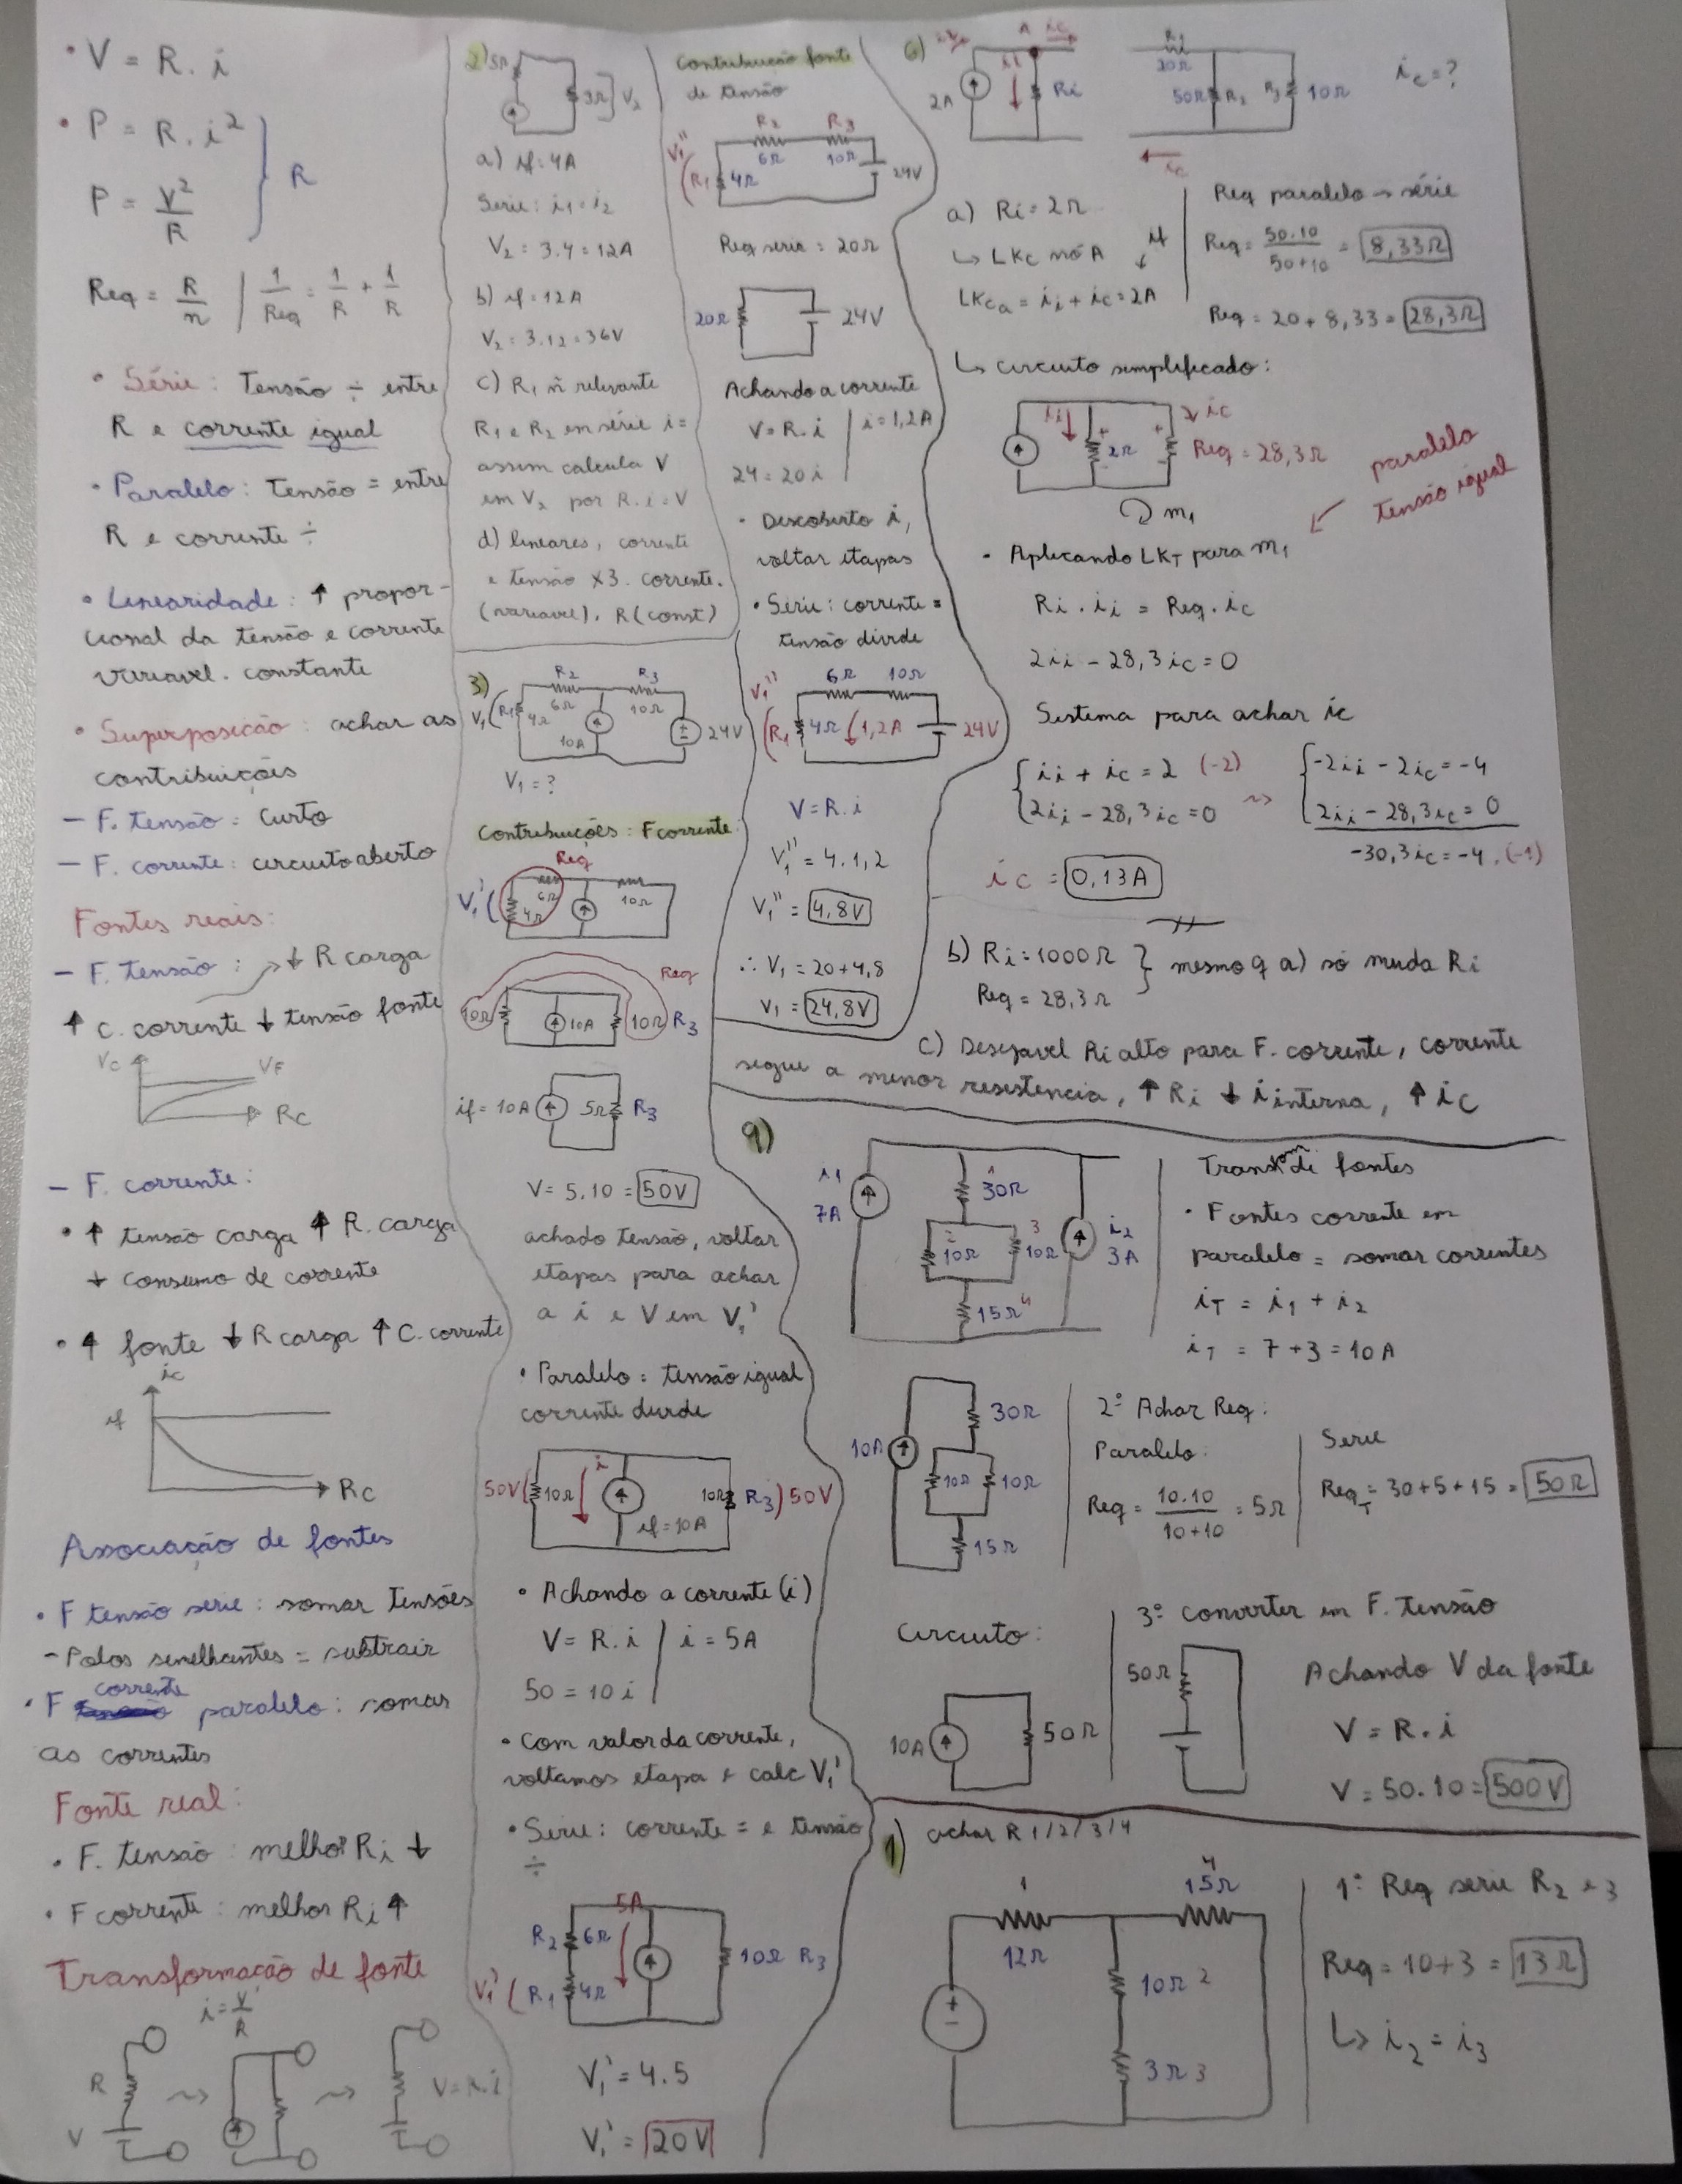 • V = R . i
• P = R . i² } R
P = V²/R
Req = R/n | 1/Req = 1/R + 1/R
• Série : Tensão ÷ entre
R e corrente igual
• Paralelo : Tensão = entre
R e corrente ÷
• Linearidade : ↑ propor-
cional da tensão e corrente
variavel . constante
• Superposição : achar as
contribuições
- F. tensão : curto
- F. corrente : circuito aberto
Fontes reais :
- F. tensão : ↓ R carga
↑ C. corrente ↓ tensão fonte
Vc VF
Rc
- F. corrente :
• ↑ tensão carga ↑ R. carga
↓ consumo de corrente
• ↑ fonte ↓ R carga ↑ C. corrente
ic
if
Rc
Associação de fontes
• F tensão serie : somar Tensões
- Polos semelhantes = subtrair
• F corrente paralelo : somas
as correntes
Fonte real :
• F. tensão : melhor Ri ↓
• F corrente : melhor Ri ↑
Transformação de fonte
i = V/R
R
V
V = R.i
2) 5Ω 3Ω V₂
a) if = 4A
Serie : i₁ = i₂
V₂ = 3.4 = 12A
b) if = 12A
V₂ = 3.12 = 36V
c) R₁ ñ relevante
R₁ e R₂ em série i =
assim calcula V
em V₂ por R.i = V
d) lineares, corrente
e tensão x3. corrente.
(variavel), R (const)
3) R₂ R₃
V₁ R₁ 4Ω 6Ω 10Ω
10A 24V
V₁ = ?
Contribuições : F corrente
Req
V₁' 4Ω 6Ω 10Ω
Req
10Ω 10A 10Ω R₃
if = 10A 5Ω R₃
V = 5.10 = 50V
achado tensão, voltar
etapas para achar
a i e V em V₁'
• Paralelo = tensão igual
corrente divide
50V 10Ω i if = 10A 10Ω R₃ 50V
• Achando a corrente (i)
V = R.i | i = 5A
50 = 10 i
• Com valor da corrente,
voltamos etapa e calc V₁'
• Serie : corrente = e tensão
÷
5A
R₂ 6Ω 10Ω R₃
V₁' R₁ 4Ω
V₁' = 4.5
V₁' = 20V
Contribuição fonte
de tensão
R₂ R₃
V₁'' R₁ 4Ω 6Ω 10Ω 24V
Req serie = 20Ω
20Ω 24V
Achando a corrente
V = R.i | i = 1,2A
24 = 20i
• Descoberto i,
voltar etapas
• Série : corrente =
tensão divide
V₁'' 6Ω 10Ω
R₁ 4Ω 1,2A 24V
V = R.i
V₁'' = 4.1,2
V₁'' = 4,8V
∴ V₁ = 20+4,8
V₁ = 24,8V
6) A ic
2A ii Ri
R₁ 20Ω 50Ω R₂ R₃ 10Ω
ic = ?
ic
a) Ri = 2Ω
↳ LKC nó A if
LKCa = ii + ic = 2A
Req paralelo → série
Req = 50.10/50+10 = 8,33Ω
Req = 20 + 8,33 = 28,3Ω
↳ circuito simplificado :
ii 2Ω ic Req = 28,3Ω
m₁
paralelo
tensão igual
• Aplicando LKT para m₁
Ri . ii = Req . ic
2ii - 28,3ic = 0
Sistema para achar ic
ii + ic = 2 (-2)
2ii - 28,3ic = 0
-2ii - 2ic = -4
2ii - 28,3ic = 0
-30,3ic = -4 . (-1)
ic = 0,13A
b) Ri = 1000Ω } mesmo q a) só muda Ri
Req = 28,3Ω
c) Desejavel Ri alto para F. corrente, corrente
segue a menor resistencia, ↑ Ri ↓ i interna, ↑ ic
9)
i1 7A
1 30Ω
2 10Ω 3 10Ω
15Ω 4
i₂ 3A
Transform de fontes
• Fontes corrente em
paralelo = somar correntes
iT = i₁ + i₂
iT = 7 + 3 = 10A
10A 30Ω
10Ω 10Ω
15Ω
2º Achar Req :
Paralelo :
Req = 10.10/10+10 = 5Ω
Serie
ReqT = 30+5+15 = 50Ω
Circuito :
10A 50Ω
3º converter em F. Tensão
50Ω
Achando V da fonte
V = R.i
V = 50.10 = 500V
1) achar R 1/2/3/4
1 12Ω
4 15Ω
10Ω 2
3Ω 3
1º Req serie R₂ e 3
Req = 10+3 = 13Ω
↳ i₂ = i₃